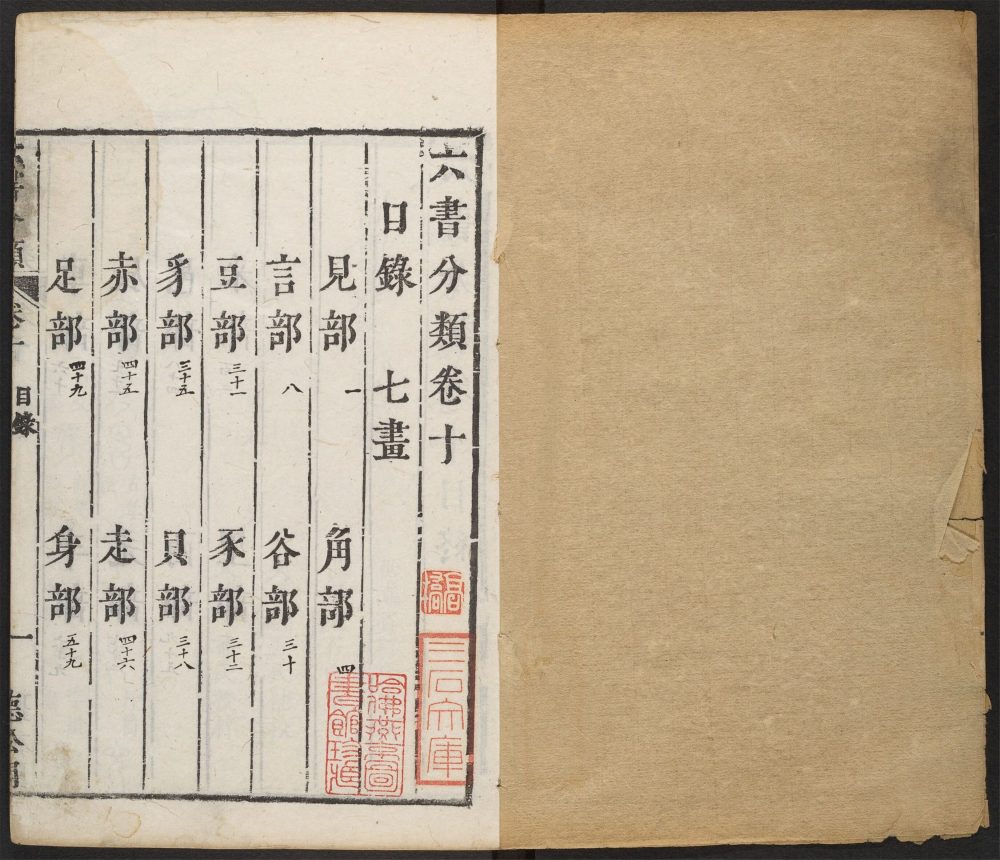 六書分類卷十
目錄 七畫
見部 一 角部 四
言部 八 谷部 三十
豆部 三十一 豕部 三十二
豸部 三十五 貝部 三十八
赤部 四十五 走部 四十六
足部 四十九 身部 五十九
六書分類 卷十 目錄 一
三石文庫
哈佛燕京圖書館珍藏